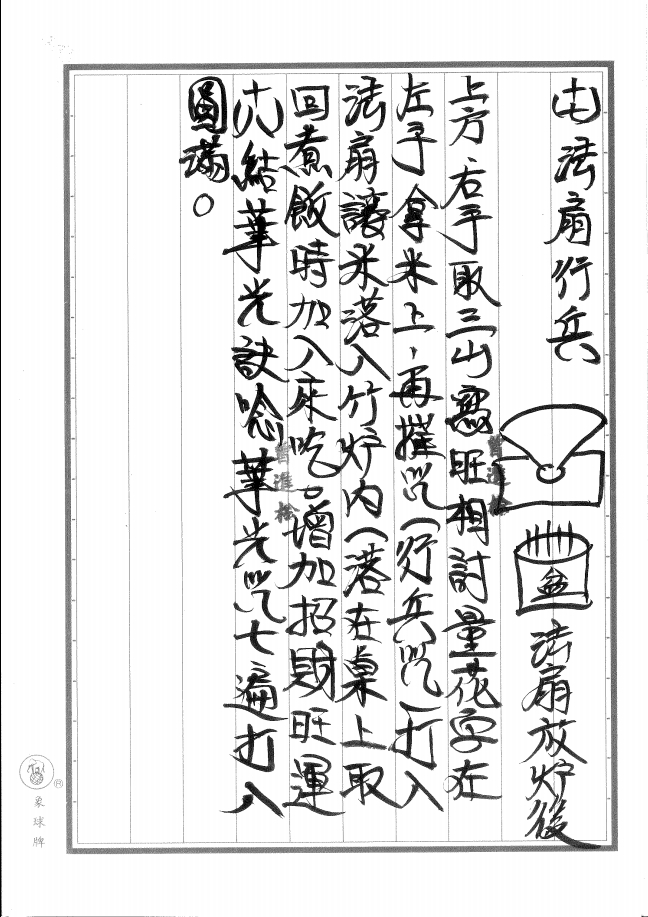 十七法扇行兵 法扇放炉後
上方、右手取三山寫旺相討量花字在
左手拿米上、再摧咒(行兵咒)打入
法扇讓米落入竹炉內(落在桌上取
回煮飯時加入來吃。增加招財旺運
十八結華光訣唸華光咒七遍打入
圓滿。
盆
象球牌